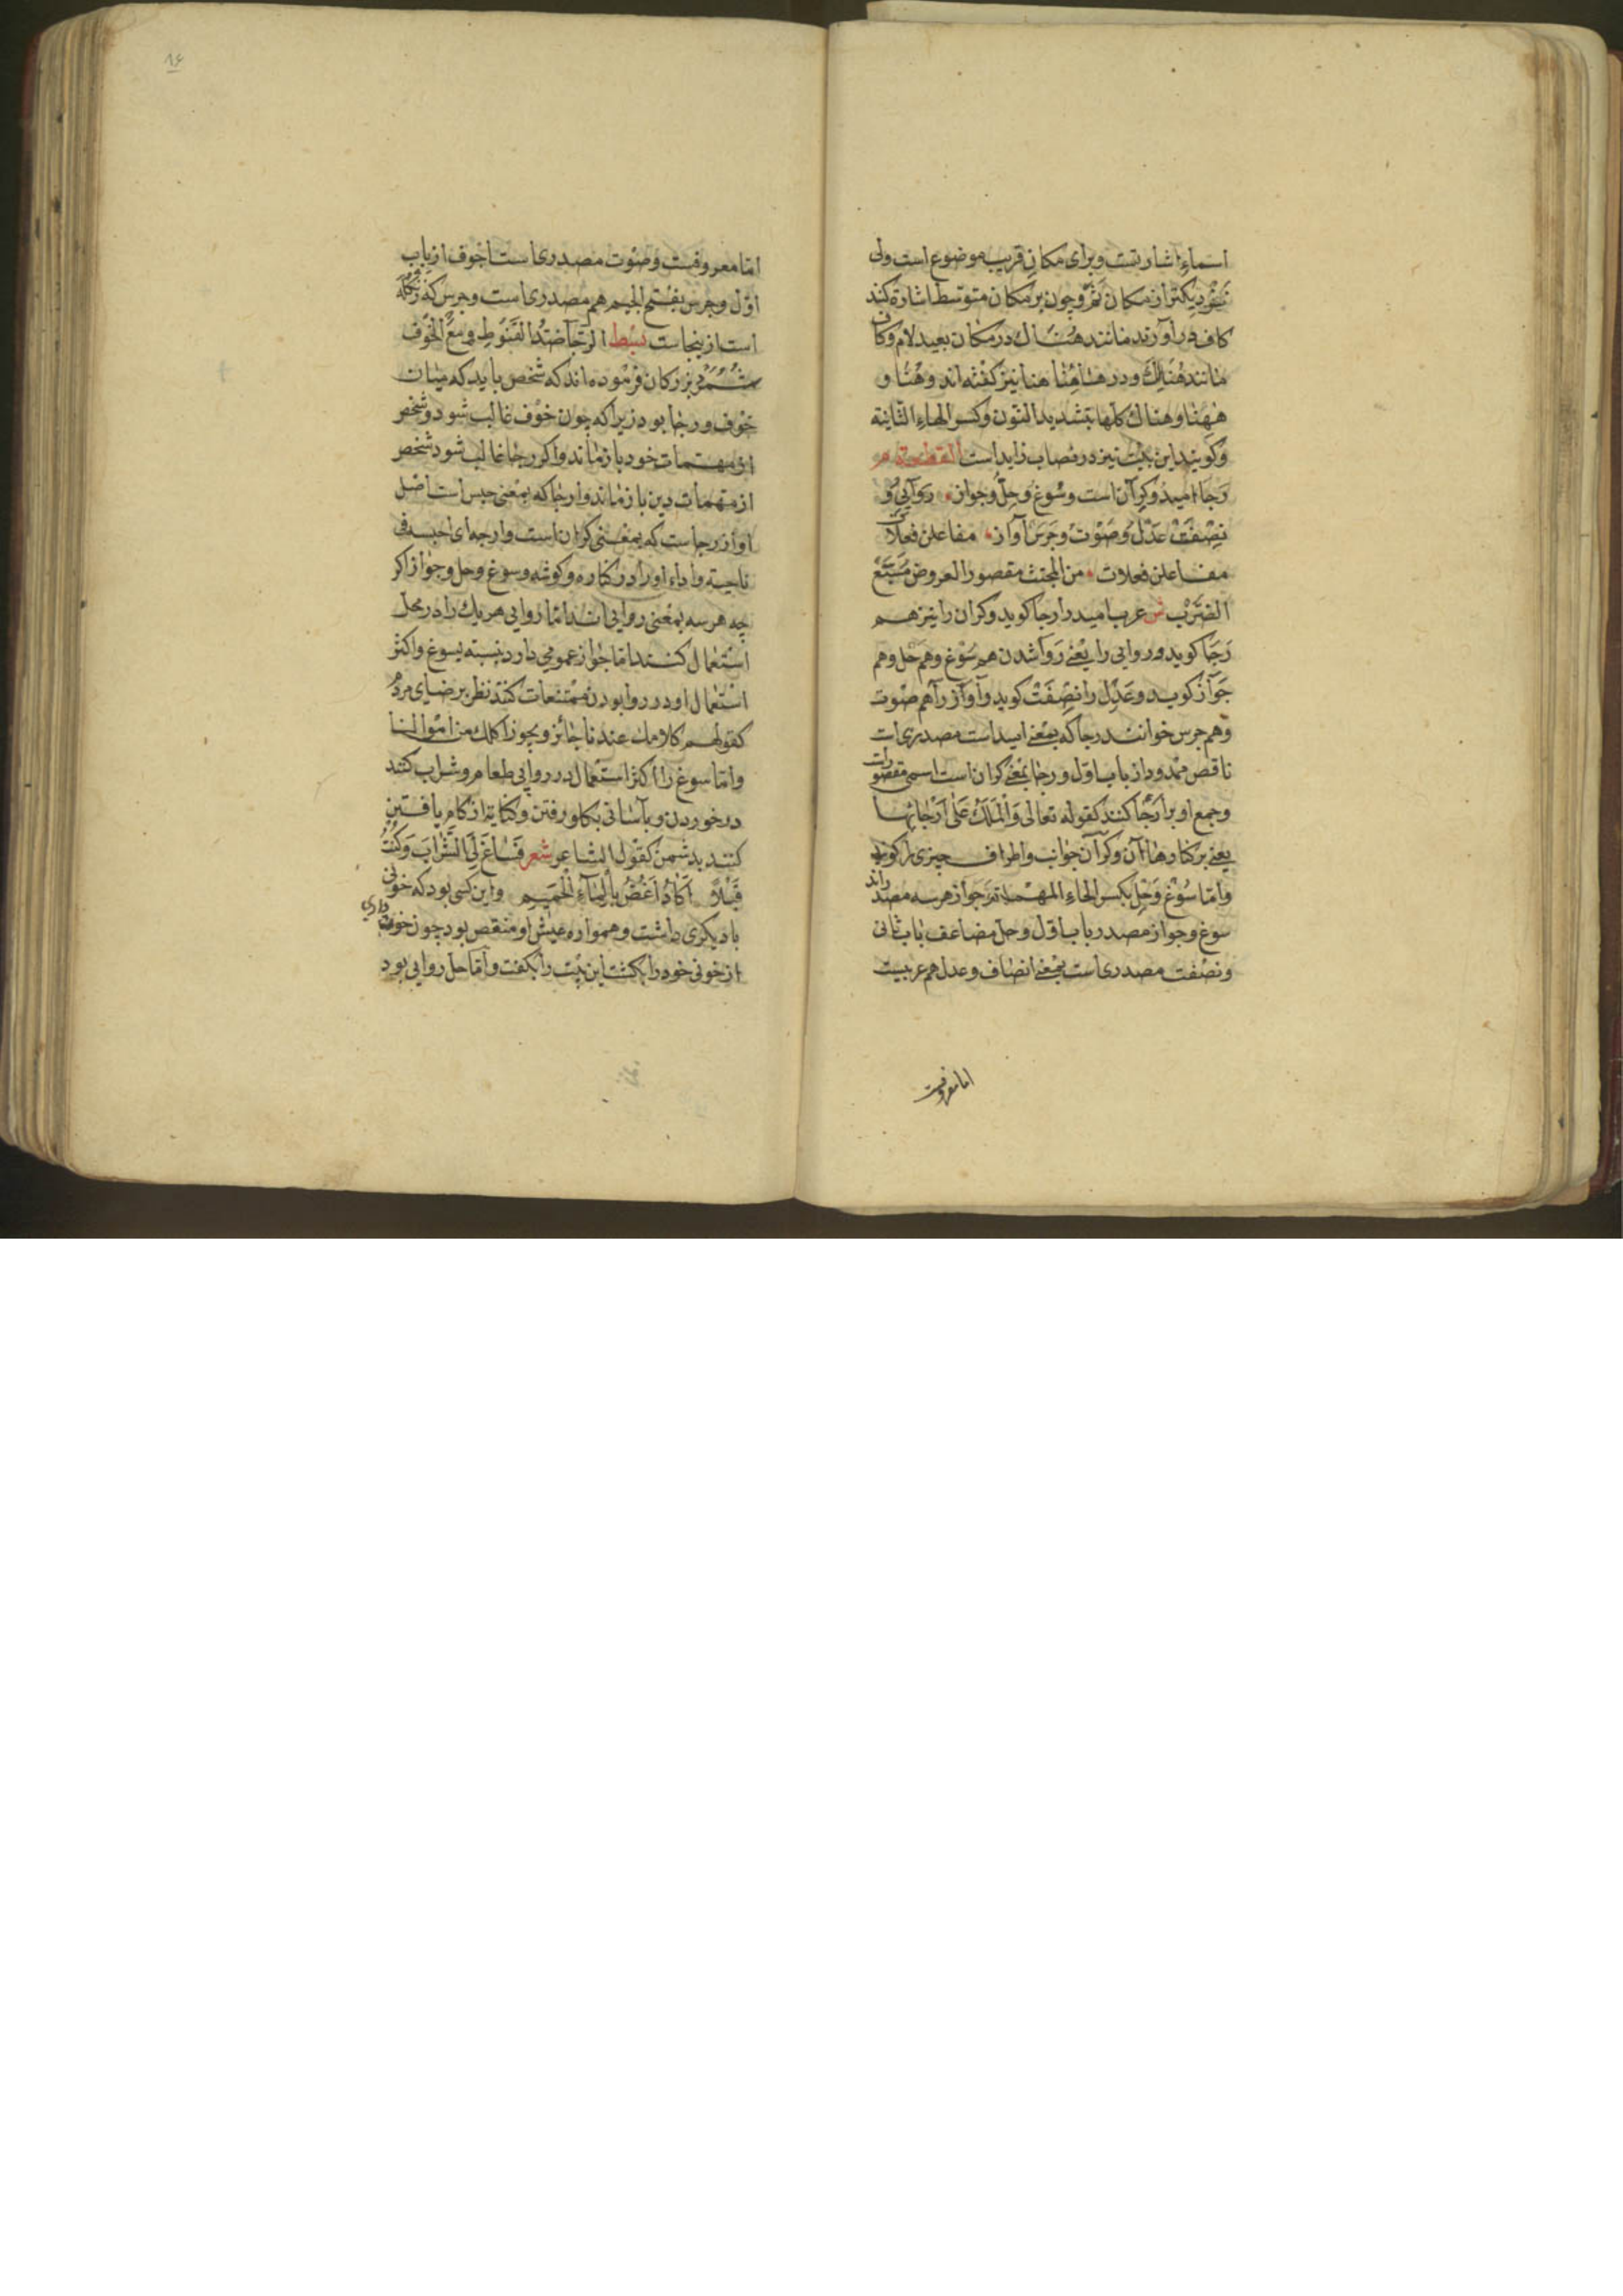 اسماء اشارتست و برای مکان قریب موضوع است ولی
نزدیکتر از مکان ثم و چون بر مکان متوسط اشارة کنند
کاف در آورند مانند هناك در مکان بعید لام و کاف
مانند هنالك و در هاهنا هنا نیز کفته اند و هنا و
ههنا و هناك کلها بتشدید النون و کسر الهاء الثانیة
و کویند این بیت نیز در نصاب زاید است القطعة م
رَجا امید و کرآن است و سَوغ و حِلّ و جواز روآیی و
نصفَت عَدْل وَ صَوْت و جَرَس آواز مفاعلن فعلاتن
مفاعلن فعلات من المجتث مقصور العروض مسبّغ
الضرب ش عرب امید را رجا کوید و کران را نیز هم
رَجَا کوید و روایی را یعنی روآ شدن هم سَوْغ و هم حل و هم
جَوآز کوید و عَدْل را نصِفَتْ کوید و آوآز رآ هم صَوْت
و هم جرس خوانند رجا که بمعنی امید است مصدری است
ناقص ممدود از باب اول و رجا بمعنی کران است اسمی مقصور است
و جمع او بر ارجا کنند کقوله تعالی وَالْمَلَكُ عَلَى أَرْجَائِهَا
یعنی بر کنارها آن و کرآن جوانب و اطراف چیزی را کویند
و امّا سَوْغ و حِل بکسر الحاء المهملة و جَواز هر سه مصدراند
سوغ و جواز مصدر باب اوّل و حل مضاعف باب ثانی
و نصفت مصدری است بمعنی انصاف و عدل هم عربیست
اما معروفست
۱۶
امّا معروفست و صَوت مصدری است اجوف از باب
اوّل و جرس بفتح الجیم هم مصدری است و جرس که زنکله
است ازینجاست بسط الرجا ضدّ القنوط و مع الخوف
بزرکان فرموده اند که شخص باید که میان
خوف و رجا بود زیرا که چون خوف غالب شود شخص
از مهمات خود باز ماند و اکر رجا غالب شود شخص
از مهمات دین باز ماند و ارجا که بمعنی حبس است اصل
او از رجاست که بمعنی کران است و ارجه ای احبسه فی
ناحیته و اداء او را در کناره و کوشه و سوغ و حل و جواز اکر
چه هر سه بمعنی روایی اند امّا روایی هر یك را در محل
استعمال کنند امّا جواز عمومی دارد بنسبته بسوغ و اکثر
استعمال او در روا بودن ممتنعات کنند نظر بر ضای مردم
کقولهم کلامك عندنا جائز و یجوز اکلك من اموالنا
و امّا سوغ را اکثر استعمال در روایی طعام و شراب کنند
در خوردن و بآسانی بکلو رفتن و کنایة از کام یافتن
کنند بدشمن کقول الشاعر شعر فَسَاغَ لِيَ الشَّرَابُ وَكُنْتُ
قَبْلاً أَكَادُ أَغُصُّ بِالْمَاءِ الْحَمِيمِ و این کسی بود که خونی
با دیکری داشت و همواره عیش او منغص بود چون
از خونی خود را بکشت این بیت را بکفت و اما حل روایی بود